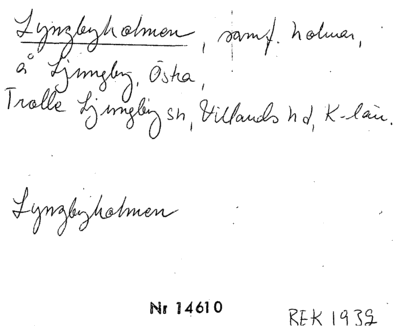 Lyngbyholmen, samf. holmar,
å Ljungby, Östra,
Trolle Ljungby sn, Villands hd, K-län.
Lyngbyholmen
Nr 14610
REK 1932